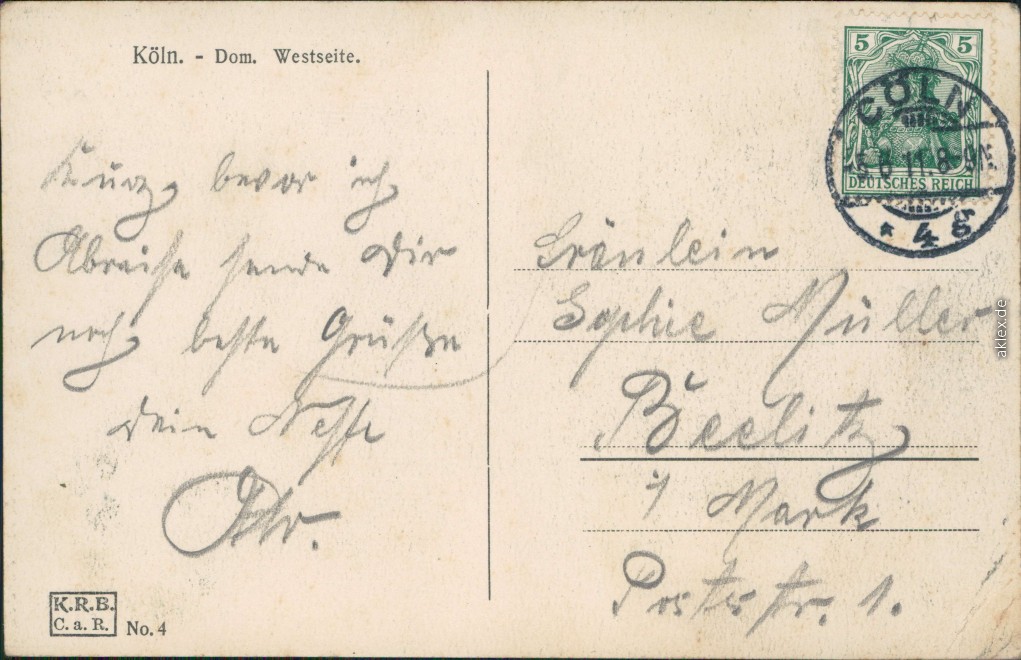 Köln. - Dom. Westseite.
Kurz, bevor ich
Abreise sende Dir
noch beste Grüße
Dein Neffe
K.R.B.
C. a. R.
No. 4
5 5
DEUTSCHES REICH
CÖLN
5.6.11.8-9
* 4 g
Fräulein
Sophie Müller
Beelitz
i/ Mark
Poststr. 1.
aklex.de